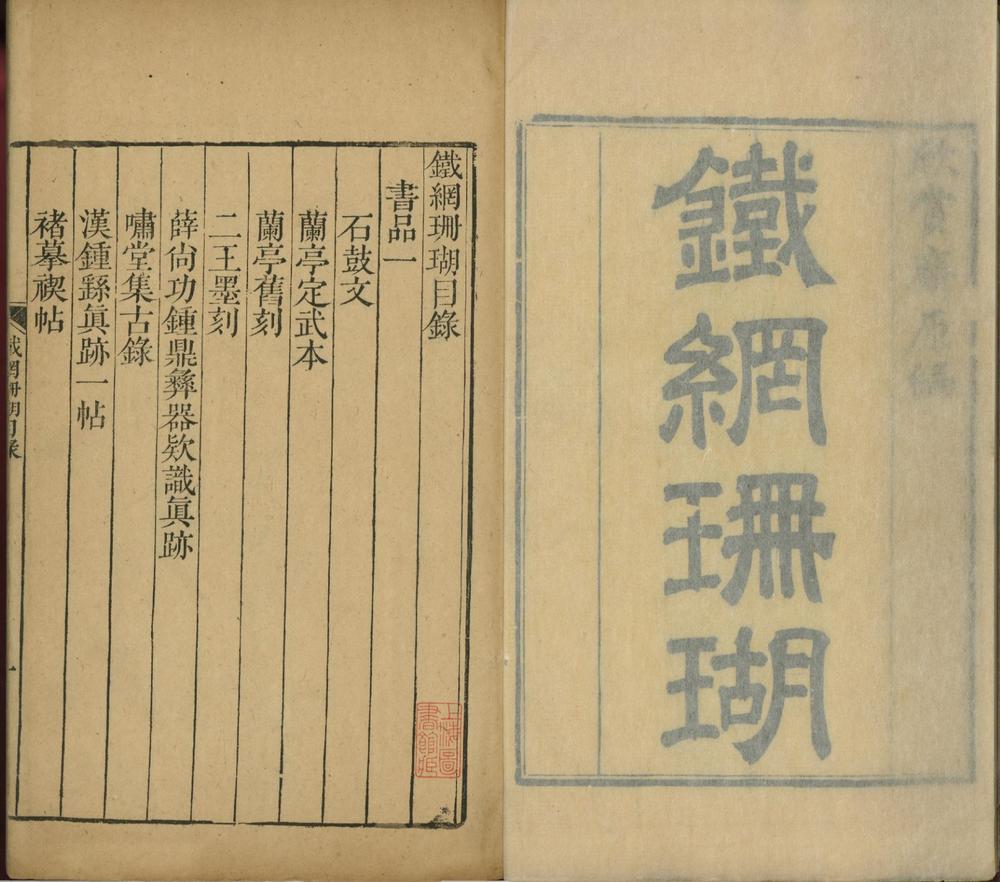 鐵網珊瑚
鐵網珊瑚目錄
書品一
石鼓文
蘭亭定武本
蘭亭舊刻
二王墨刻
薛尙功鍾鼎彝器欵識眞跡
嘯堂集古錄
漢鍾繇眞跡一帖
褚摹禊帖
鐵網珊瑚目錄
一
上海圖
書館藏